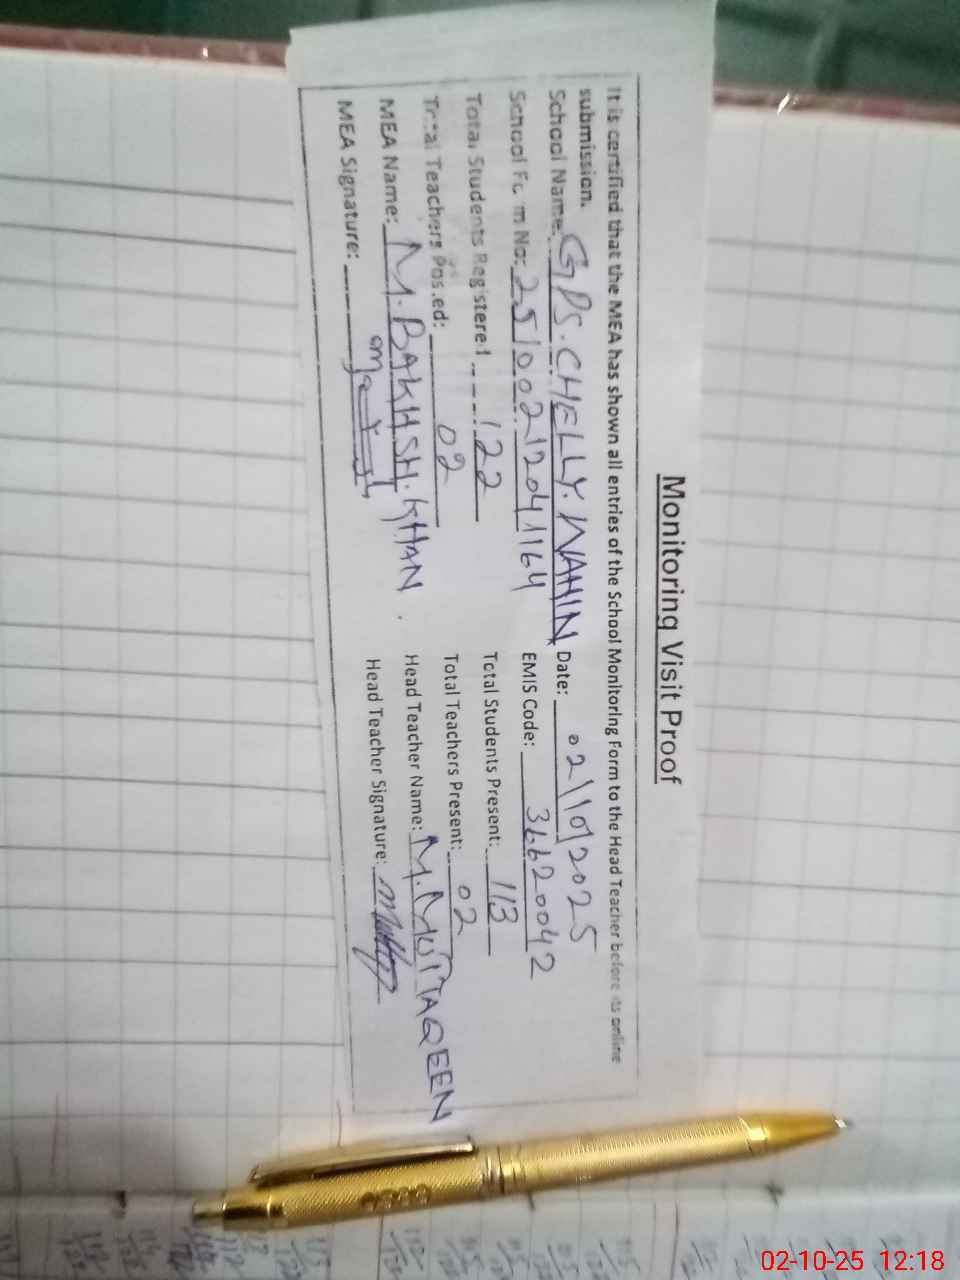 Monitoring Visit Proof
It is certified that the MEA has shown all entries of the School Monitoring Form to the Head Teacher before its online
submission.
School Name: GPS. CHELLY. WAHIN Date: 02/10/2025
School Form No: 25100212041164 EMIS Code: 36620042
Total Students Registered 122 Total Students Present: 113
Total Teachers Posted: 02 Total Teachers Present: 02
MEA Name: M. BAKHSH. KHAN. Head Teacher Name: M. MUTTAQEEN
MEA Signature: Head Teacher Signature:
02-10-25 12:18